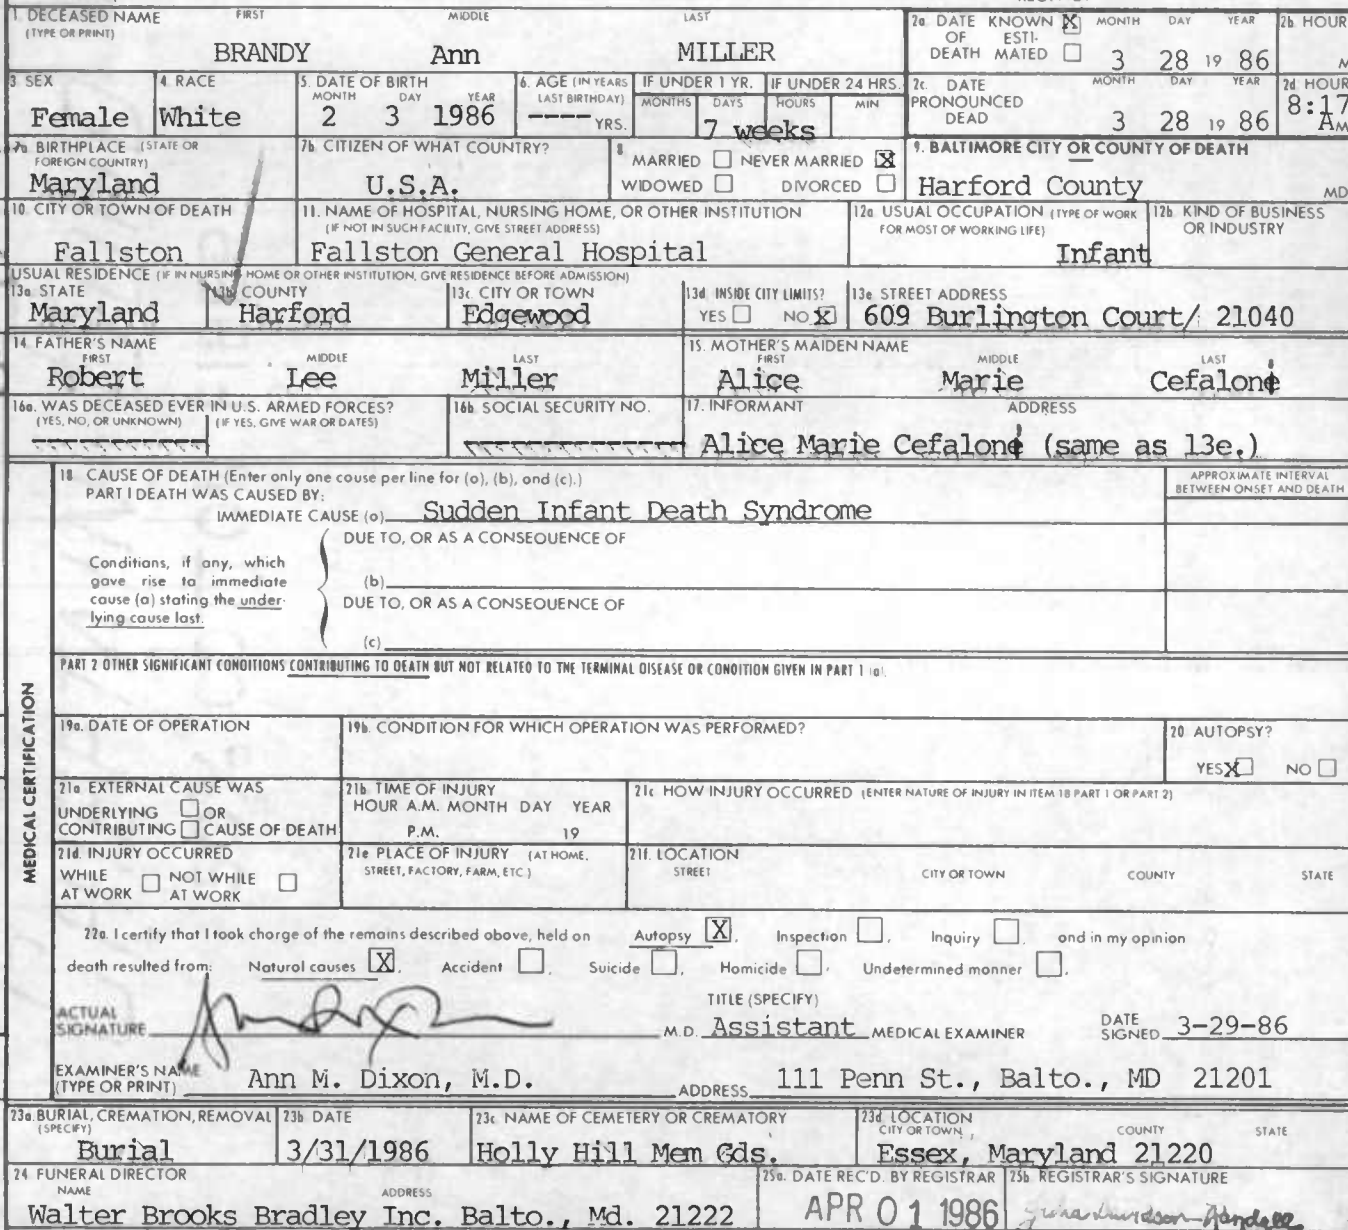 1. DECEASED NAME FIRST MIDDLE LAST
(TYPE OR PRINT)
BRANDY Ann MILLER
2a. DATE KNOWN X MONTH DAY YEAR
OF ESTI-
DEATH MATED
3 28 19 86
2b. HOUR
M
3. SEX
Female
4. RACE
White
5. DATE OF BIRTH
MONTH DAY YEAR
2 3 1986
6. AGE (IN YEARS
LAST BIRTHDAY)
---- YRS.
IF UNDER 1 YR. IF UNDER 24 HRS.
MONTHS DAYS HOURS MIN
7 weeks
2c. DATE MONTH DAY YEAR
PRONOUNCED
DEAD
3 28 19 86
2d. HOUR
8:17
AM
7a. BIRTHPLACE (STATE OR
FOREIGN COUNTRY)
Maryland
7b. CITIZEN OF WHAT COUNTRY?
U.S.A.
8. MARRIED NEVER MARRIED X
WIDOWED DIVORCED
9. BALTIMORE CITY OR COUNTY OF DEATH
Harford County MD
10. CITY OR TOWN OF DEATH
Fallston
11. NAME OF HOSPITAL, NURSING HOME, OR OTHER INSTITUTION
(IF NOT IN SUCH FACILITY, GIVE STREET ADDRESS)
Fallston General Hospital
12a. USUAL OCCUPATION (TYPE OF WORK
FOR MOST OF WORKING LIFE)
Infant
12b. KIND OF BUSINESS
OR INDUSTRY
USUAL RESIDENCE (IF IN NURSING HOME OR OTHER INSTITUTION, GIVE RESIDENCE BEFORE ADMISSION)
13a. STATE
Maryland
13b. COUNTY
Harford
13c. CITY OR TOWN
Edgewood
13d. INSIDE CITY LIMITS?
YES NO X
13e. STREET ADDRESS
609 Burlington Court/ 21040
14. FATHER'S NAME
FIRST MIDDLE LAST
Robert Lee Miller
15. MOTHER'S MAIDEN NAME
FIRST MIDDLE LAST
Alice Marie Cefaloni
16a. WAS DECEASED EVER IN U.S. ARMED FORCES?
(YES, NO, OR UNKNOWN) (IF YES, GIVE WAR OR DATES)
16b. SOCIAL SECURITY NO.
17. INFORMANT ADDRESS
Alice Marie Cefaloni (same as 13e.)
18. CAUSE OF DEATH (Enter only one cause per line for (a), (b), and (c).)
PART I DEATH WAS CAUSED BY:
IMMEDIATE CAUSE (a) Sudden Infant Death Syndrome
APPROXIMATE INTERVAL
BETWEEN ONSET AND DEATH
DUE TO, OR AS A CONSEQUENCE OF
Conditions, if any, which
gave rise to immediate
cause (a) stating the under-
lying cause last.
(b)
DUE TO, OR AS A CONSEQUENCE OF
(c)
PART 2 OTHER SIGNIFICANT CONDITIONS CONTRIBUTING TO DEATH BUT NOT RELATED TO THE TERMINAL DISEASE OR CONDITION GIVEN IN PART 1 (a).
MEDICAL CERTIFICATION
19a. DATE OF OPERATION
19b. CONDITION FOR WHICH OPERATION WAS PERFORMED?
20. AUTOPSY?
YES X NO
21a. EXTERNAL CAUSE WAS
UNDERLYING OR
CONTRIBUTING CAUSE OF DEATH
21b. TIME OF INJURY
HOUR A.M. MONTH DAY YEAR
P.M. 19
21c. HOW INJURY OCCURRED (ENTER NATURE OF INJURY IN ITEM 18 PART 1 OR PART 2)
21d. INJURY OCCURRED
WHILE NOT WHILE
AT WORK AT WORK
21e. PLACE OF INJURY (AT HOME,
STREET, FACTORY, FARM, ETC.)
21f. LOCATION
STREET CITY OR TOWN COUNTY STATE
22a. I certify that I took charge of the remains described above, held on Autopsy X, Inspection, Inquiry, and in my opinion
death resulted from: Natural causes X, Accident, Suicide, Homicide, Undetermined manner.
ACTUAL
SIGNATURE
M.D.
TITLE (SPECIFY)
Assistant MEDICAL EXAMINER
DATE
SIGNED 3-29-86
EXAMINER'S NAME
(TYPE OR PRINT) Ann M. Dixon, M.D. ADDRESS 111 Penn St., Balto., MD 21201
23a. BURIAL, CREMATION, REMOVAL
(SPECIFY)
Burial
23b. DATE
3/31/1986
23c. NAME OF CEMETERY OR CREMATORY
Holly Hill Mem Gds.
23d. LOCATION
CITY OR TOWN COUNTY STATE
Essex, Maryland 21220
24. FUNERAL DIRECTOR
NAME ADDRESS
Walter Brooks Bradley Inc. Balto., Md. 21222
25a. DATE REC'D. BY REGISTRAR
APR 01 1986
25b. REGISTRAR'S SIGNATURE